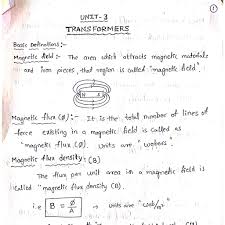 UNIT-3
TRANSFORMERS
Basic Definitions:-
Magnetic field :- The area which attracts magnetic materials
and iron pieces, that region is called "magnetic field".
N S
Magnetic flux (Ø) :- It is the total number of lines of
force existing in a magnetic field is called as
"magnetic flux (Ø). Units are "webers".
Magnetic flux density: (B)
The flux per unit area in a magnetic field is
called "magnetic flux density (B).
i.e B = Ø/A → units are "web/m²"